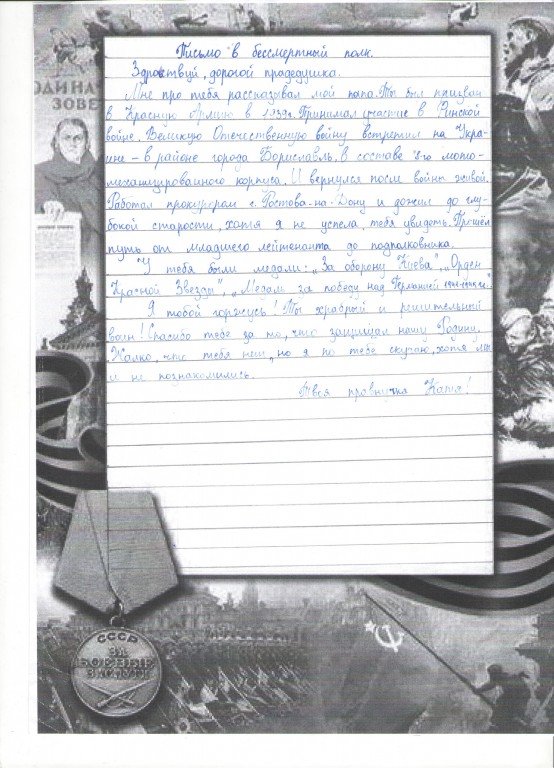 ОДИНА
ЗОВЕ
Письмо в бессмертный полк.
Здравствуй, дорогой прадедушка.
Мне про тебя рассказывал мой папа. Ты был призван
в Красную Армию в 1939г. Принимал участие в Финской
войне. Великую Отечественную войну встретил на Укра-
ине – в районе города Бориславль, в составе 8-го мото-
механизированного корпуса. И вернулся после войны живой.
Работал прокурором г. Ростова-на-Дону и дожил до глу-
бокой старости, хотя я не успела, тебя увидеть. Прошёл
путь от младшего лейтенанта до подполковника.
У тебя были медали: „За оборону Киева", „Орден
Красной Звезды", „Медаль за победу над Германией 1941-1945 гг."
Я тобой горжусь! Ты храбрый и решительный
воин! Спасибо тебе за то, что защищал нашу Родину.
Жалко, что тебя нет, но я по тебе скучаю, хотя мы
и не познакомились.
Твоя правнучка Катя!
СССР
ЗА
БОЕВЫЕ
ЗАСЛУГИ